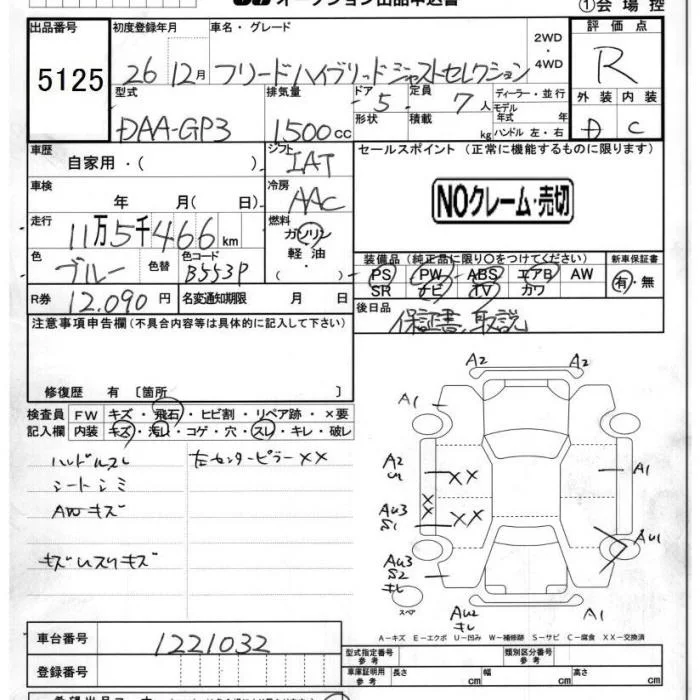 オークション出品申込書 ①会場控
出品番号 初度登録年月 車名・グレード 2WD・4WD 評価点
5125 26 12月 フリードハイブリッドジャストセレクション R
型式 排気量 ドア 定員 ディーラー・並行 外装 内装
DAA-GP3 1500cc 5 7人 モデル年式 年 D C
形状 積載 kg ハンドル 左・右
車歴 自家用・( ) シフト IAT セールスポイント (正常に機能するものに限ります)
車検 年 月( 日) 冷房 AAC NOクレーム・売切
走行 11万5千466km 燃料 ガソリン・軽油・( )
色 ブルー 色替 色コード B553P 装備品(純正品に限り○をつけてください) 新車保証書
PS・PW・ABS・エアB・AW 有・無
SR ナビ TV カワ
R券 12,090円 名変通知期限 月 日 後日品 保証書、取説
注意事項申告欄(不具合内容等は具体的に記入して下さい)
修復歴 有 〔箇所
検査員記入欄 FW キズ・飛石・ヒビ割・リペア跡・×要
内装 キズ・汚れ・コゲ・穴・スレ・キレ・破レ
ハンドルスレ 左センターピラーXX
シートシミ
AWキズ
A2 A2
A1
A2 XX A1
AU3 S1 X X XX
AU1
AU3 S2 キレ
スペア
AU2 キレ A1
A-キズ E-エクボ U-凹み W-補修跡 S-サビ C-腐食 XX-交換済
車台番号 1221032
登録番号
型式指定番号 参考 類別区分番号 参考
車庫証明用 参考 長さ cm 幅 cm 高さ cm